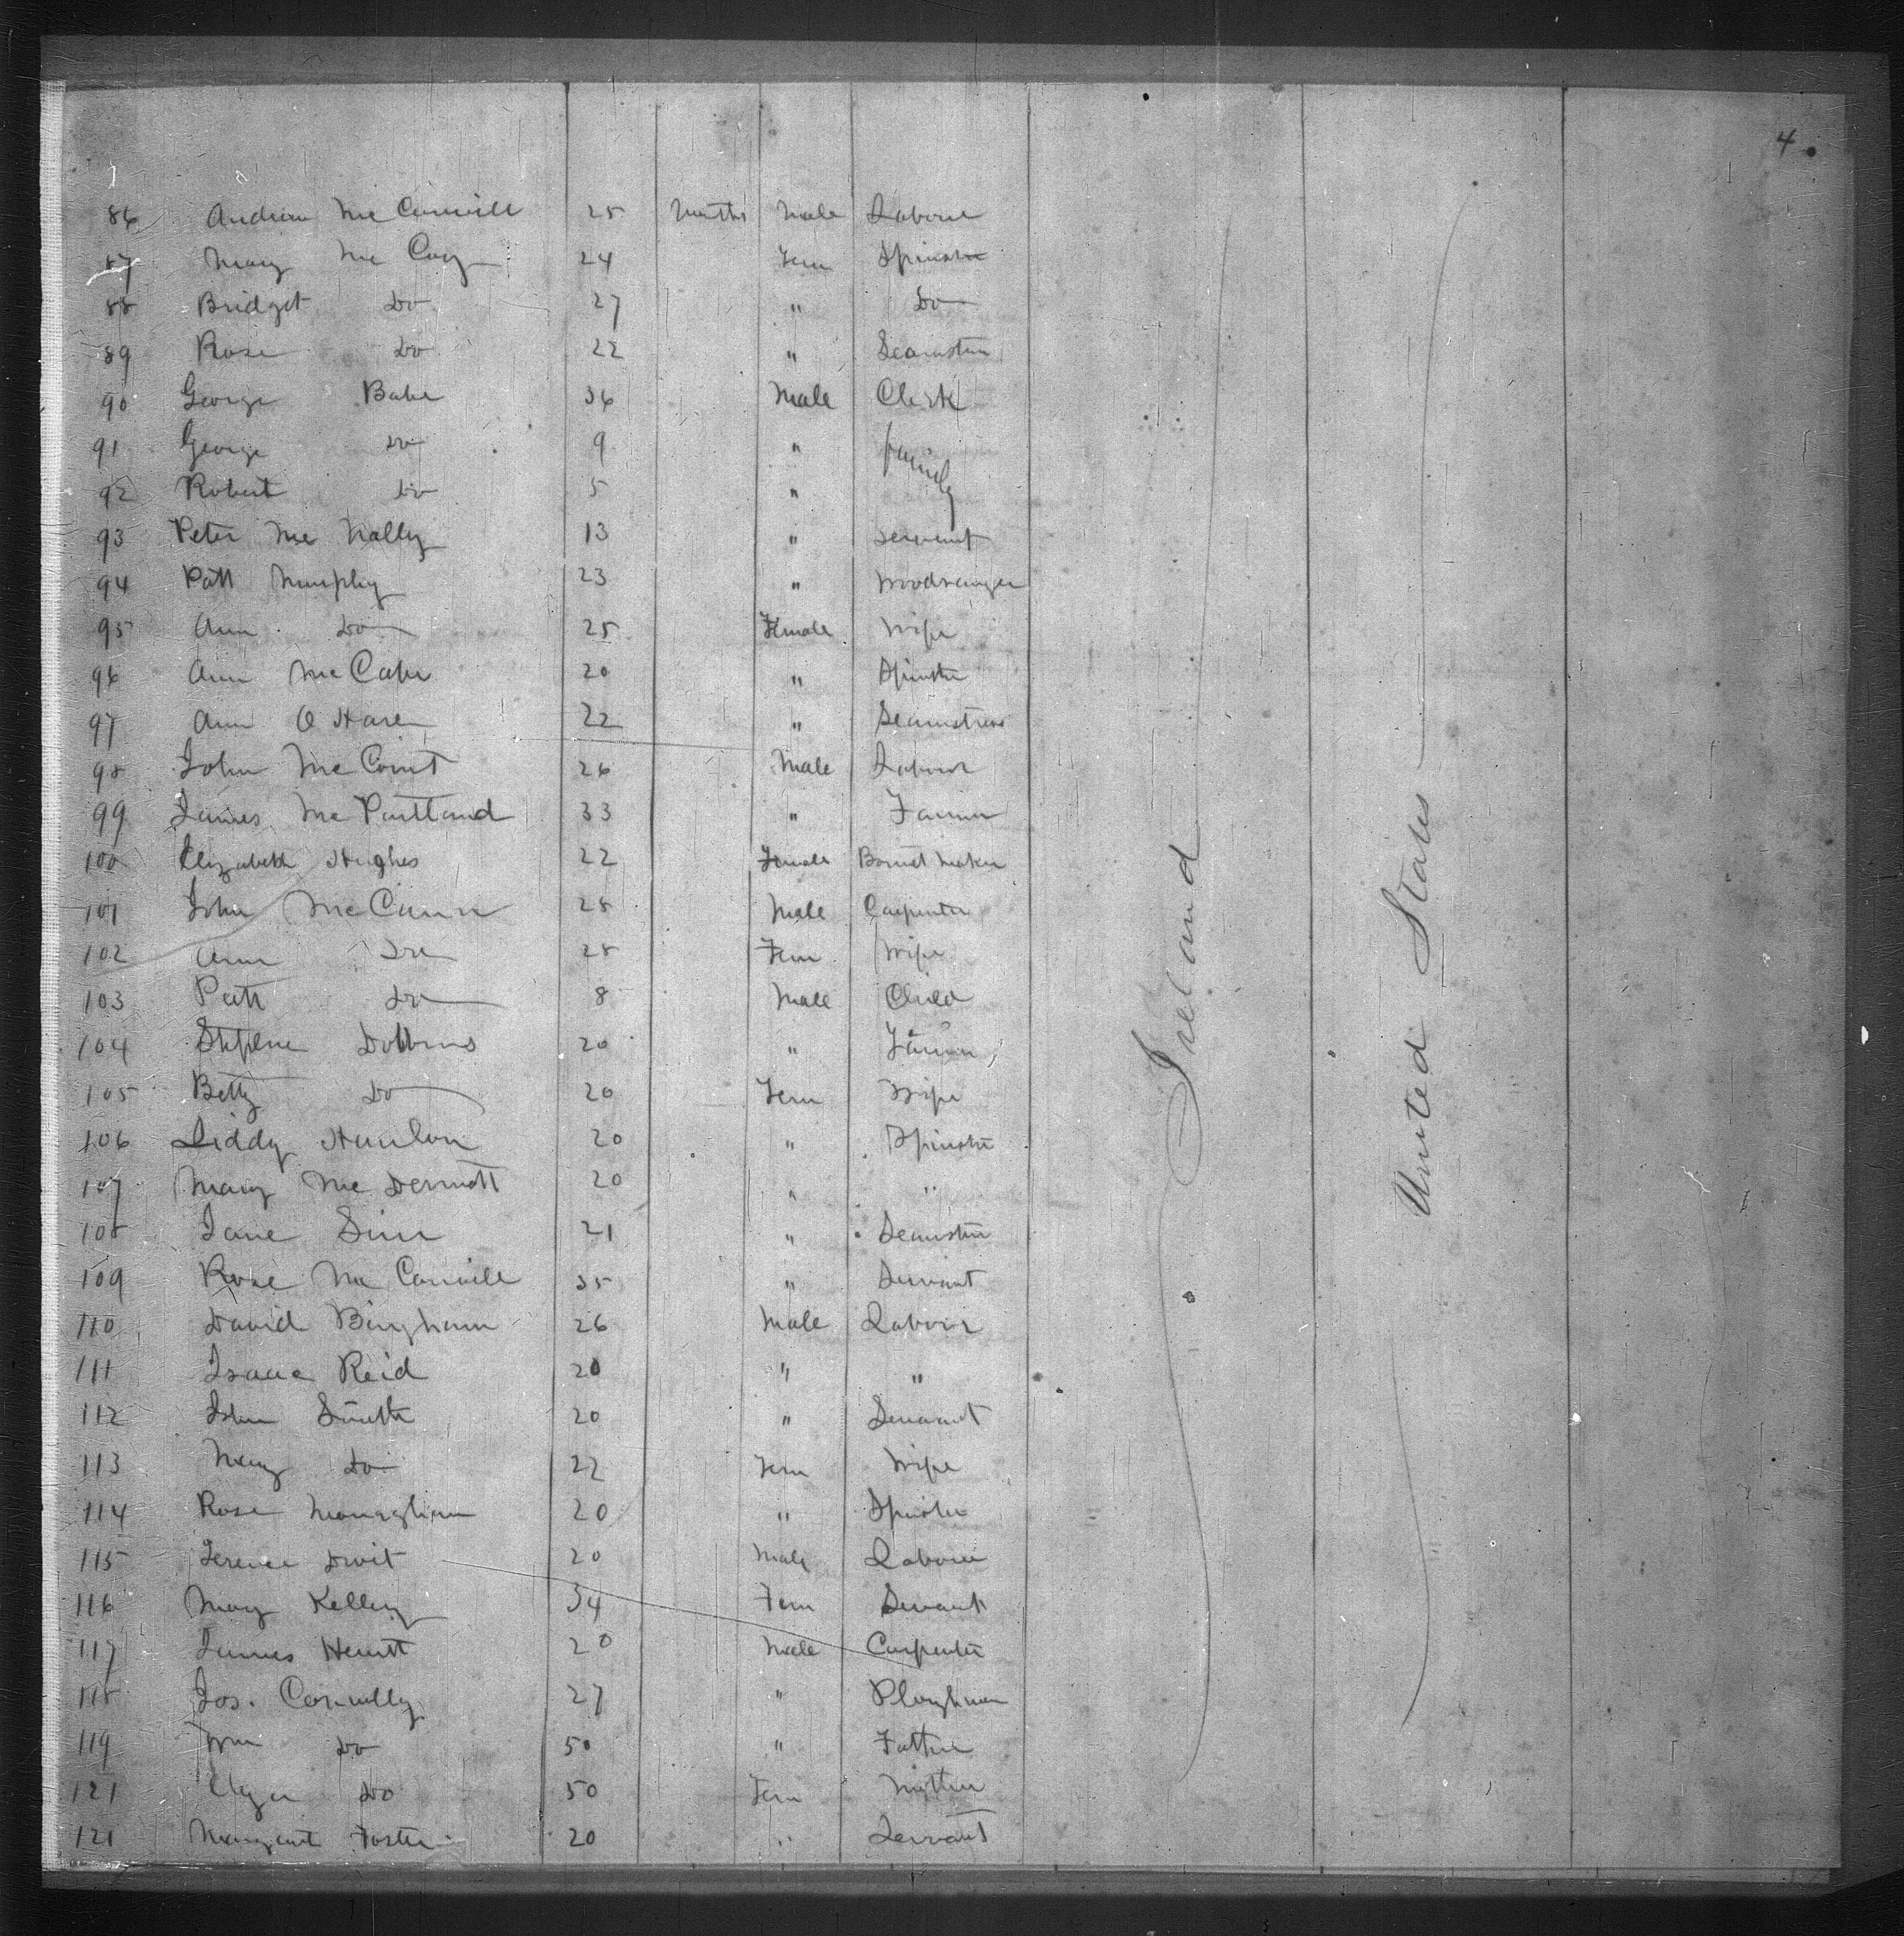 4.
86 Andrew McConvill 25 Months Male Labour
87 Mary McCoy 24 Fem Spinster
88 Bridget Do 27 " Do
89 Rose Do 22 " Seamster
90 George Babe 36 Male Clerk
91 George Do 9 " family
92 Robert Do 5 "
93 Peter McNally 13 " servant
94 Patt Murphy 23 " Woodranger
95 Ann Do 25 Female Wife
96 Ann McCabe 20 " Spinster
97 Ann O Hare 22 " Seamstress
98 John McCourt 26 Male Labour
99 James McPartland 33 " Farmer
100 Elizabeth Hughes 22 Female Bonnet Maker
101 John McCann 28 Male Carpenter
102 Ann Do 28 Fem Wife
103 Patt Do 8 Male Child
104 Stephen Dobbins 20 " Farmer
105 Betty Do 20 Fem Wife
106 Liddy Hanlon 20 " Spinster
107 Mary McDermott 20 " "
108 Jane 21 " Seamster
109 Rose McConvill 35 " Servant
110 David Bingham 26 Male Labour
111 Isaac Reid 20 " "
112 John Smith 20 " Servant
113 Mary Do 22 Fem Wife
114 Rose Monaghan 20 " Spinster
115 Terence 20 Male Labour
116 Mary Kelley 34 Fem Servant
117 James Hewitt 20 Male Carpenter
118 Jos. Connolly 27 " Ploughman
119 Wm Do 50 " Father
121 Do 50 Fem Mother
121 Margaret Foster 20 " Servant
Ireland
United States